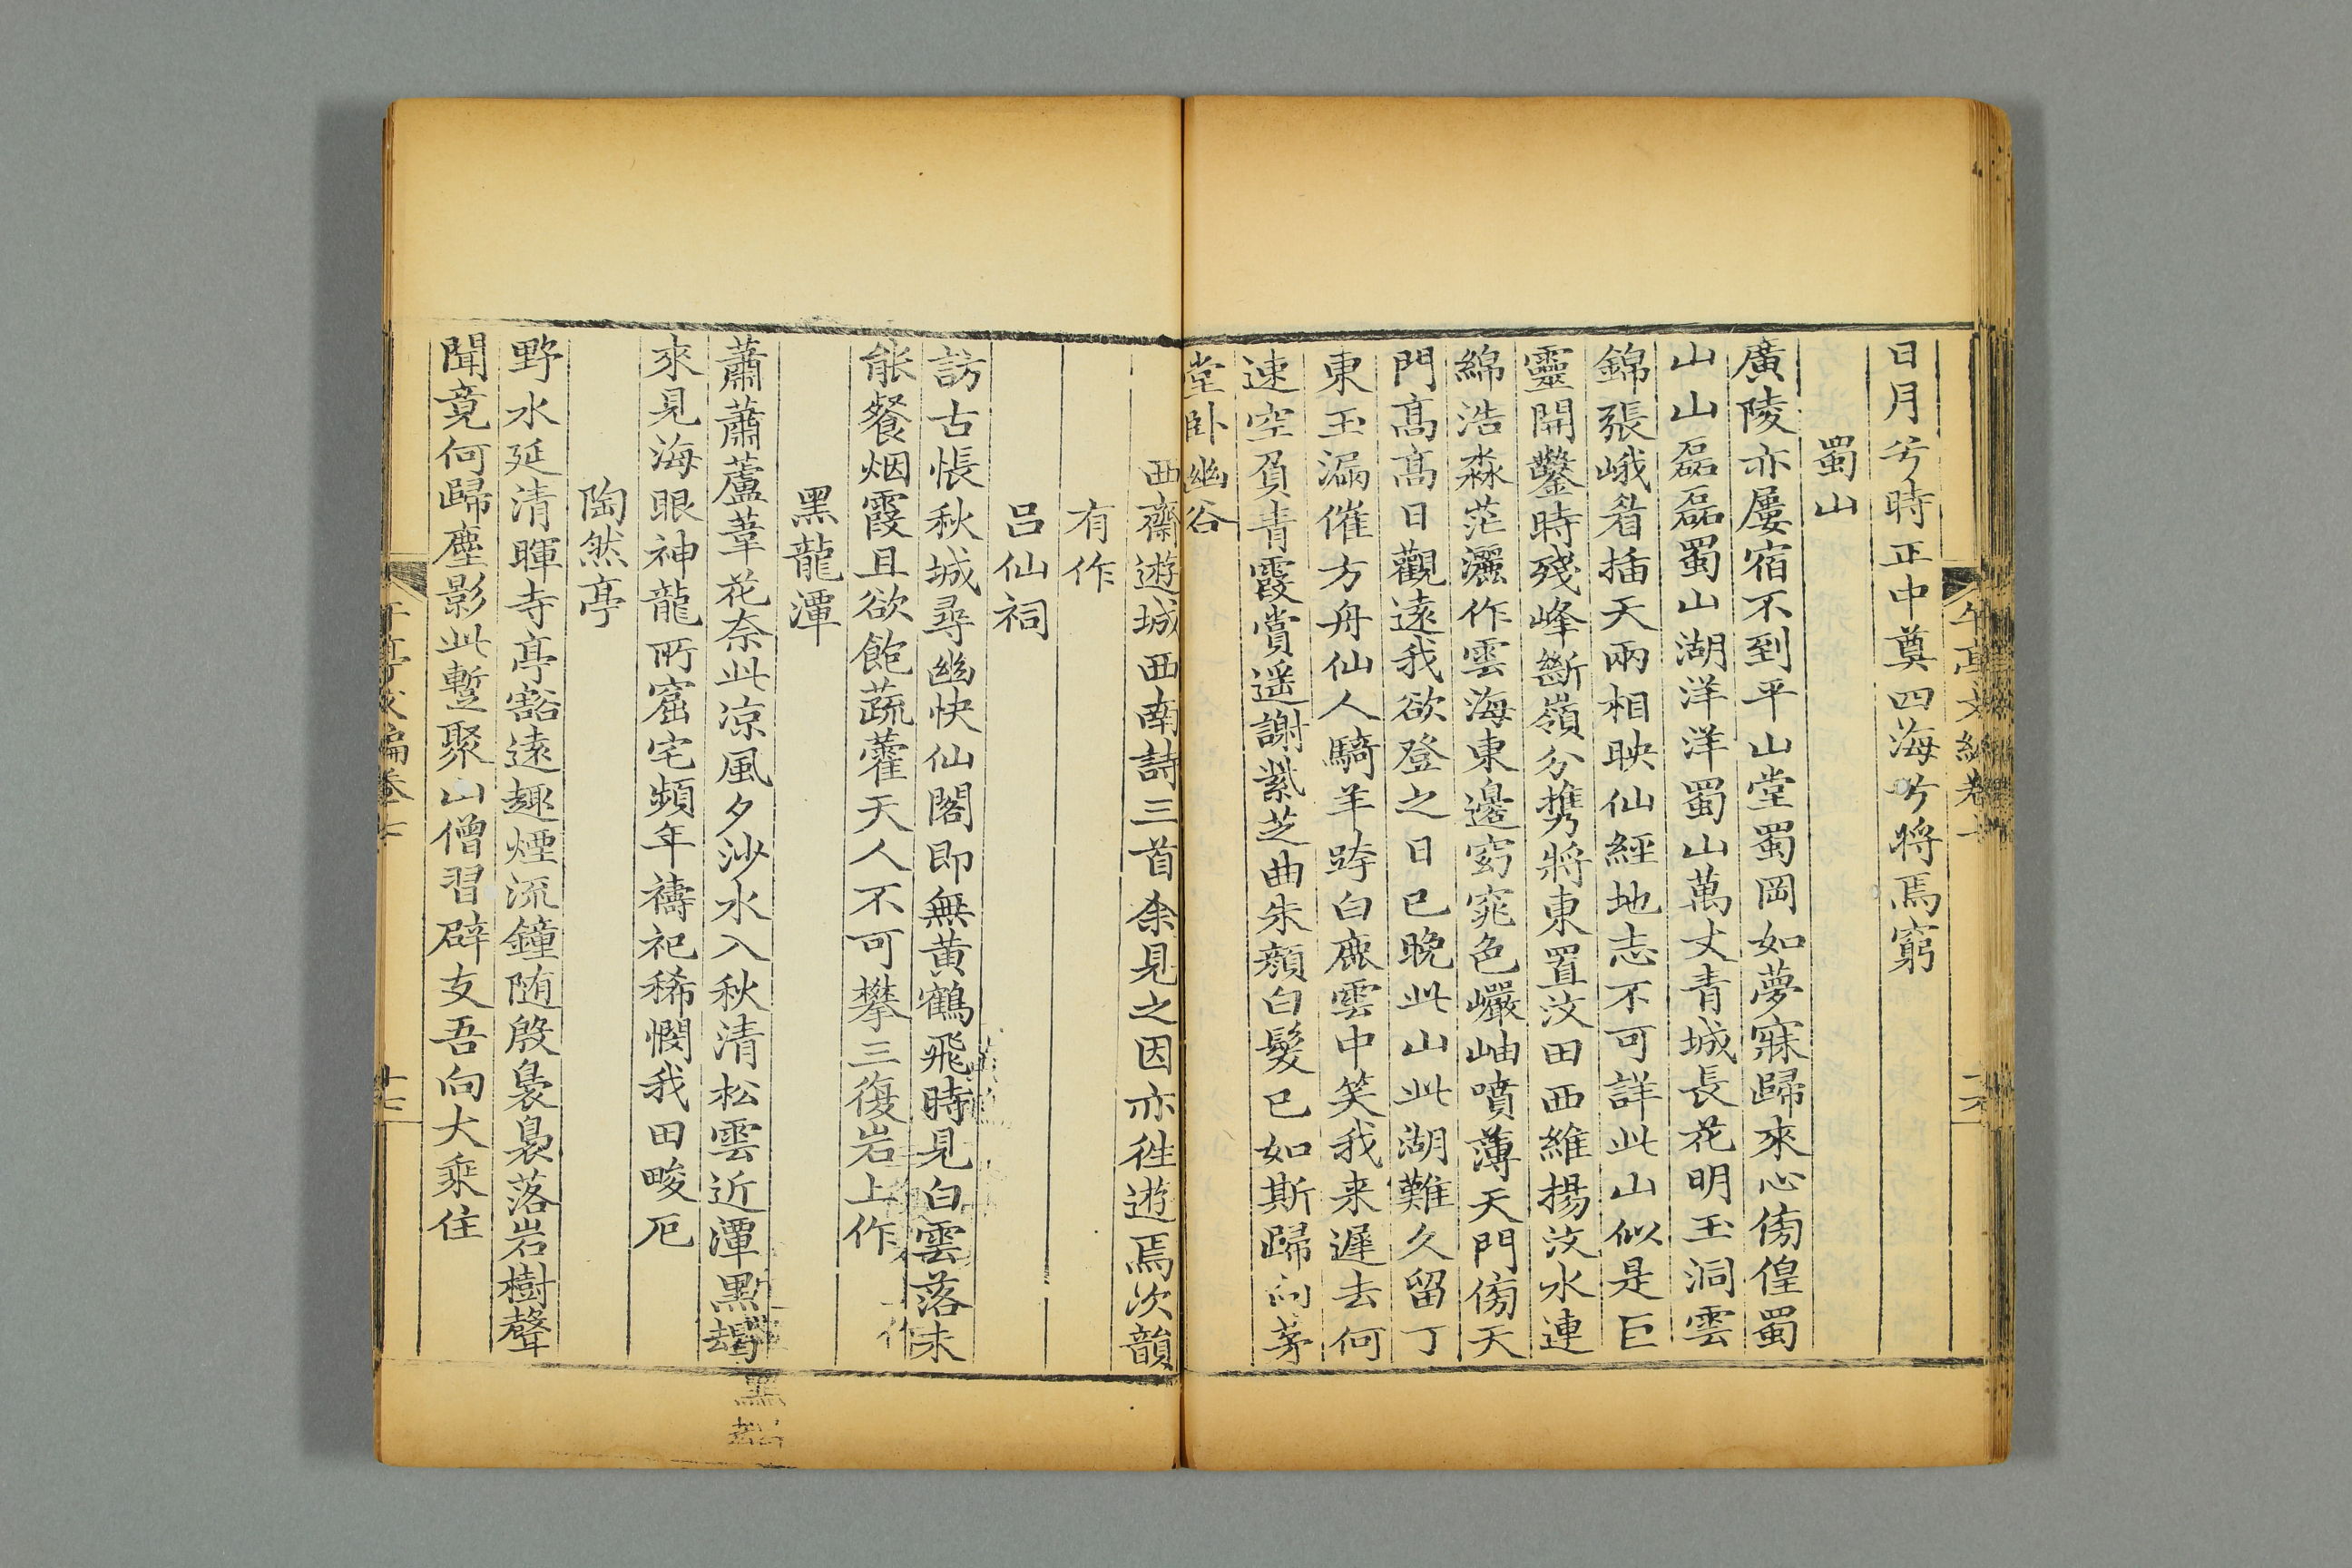 日月兮時正中奠四海兮將焉窮
蜀山
廣陵亦屢宿不到平山堂蜀岡如夢寐歸來心傍偟蜀
山山磊磊蜀山湖洋洋蜀山萬丈青城長花明玉洞雲
錦張峨眉插天兩相映仙經地志不可詳此山似是巨
靈開鑿時殘峰斷嶺分携將東置汶田西維揚汶水連
綿浩淼茫灑作雲海東邊窈窕色巘岫噴薄天門傍天
門高高日觀遠我欲登之日已晚此山此湖難久留丁
東玉漏催方舟仙人騎羊跨白鹿雲中笑我来遲去何
速空負青霞賞遥謝紫芝曲朱顔白髮已如斯歸向茅
堂卧幽谷
西齋遊城西南詩三首余見之因亦徃遊焉次韻
有作
呂仙祠
訪古悵秋城尋幽快仙閣即無黄鶴飛時見白雲落未
能餐烟霞且欲飽蔬藿天人不可攀三復岩上作
黑龍潭
蕭蕭蘆葦花奈此凉風夕沙水入秋清松雲近潭黑
來見海眼神龍所窟宅頻年禱祀稀憫我田畯厄
陶然亭
野水延清暉寺亭豁遠趣煙流鐘随殷裊裊落岩樹聲
聞竟何歸塵影此暫聚山僧習辟支吾向大乘住